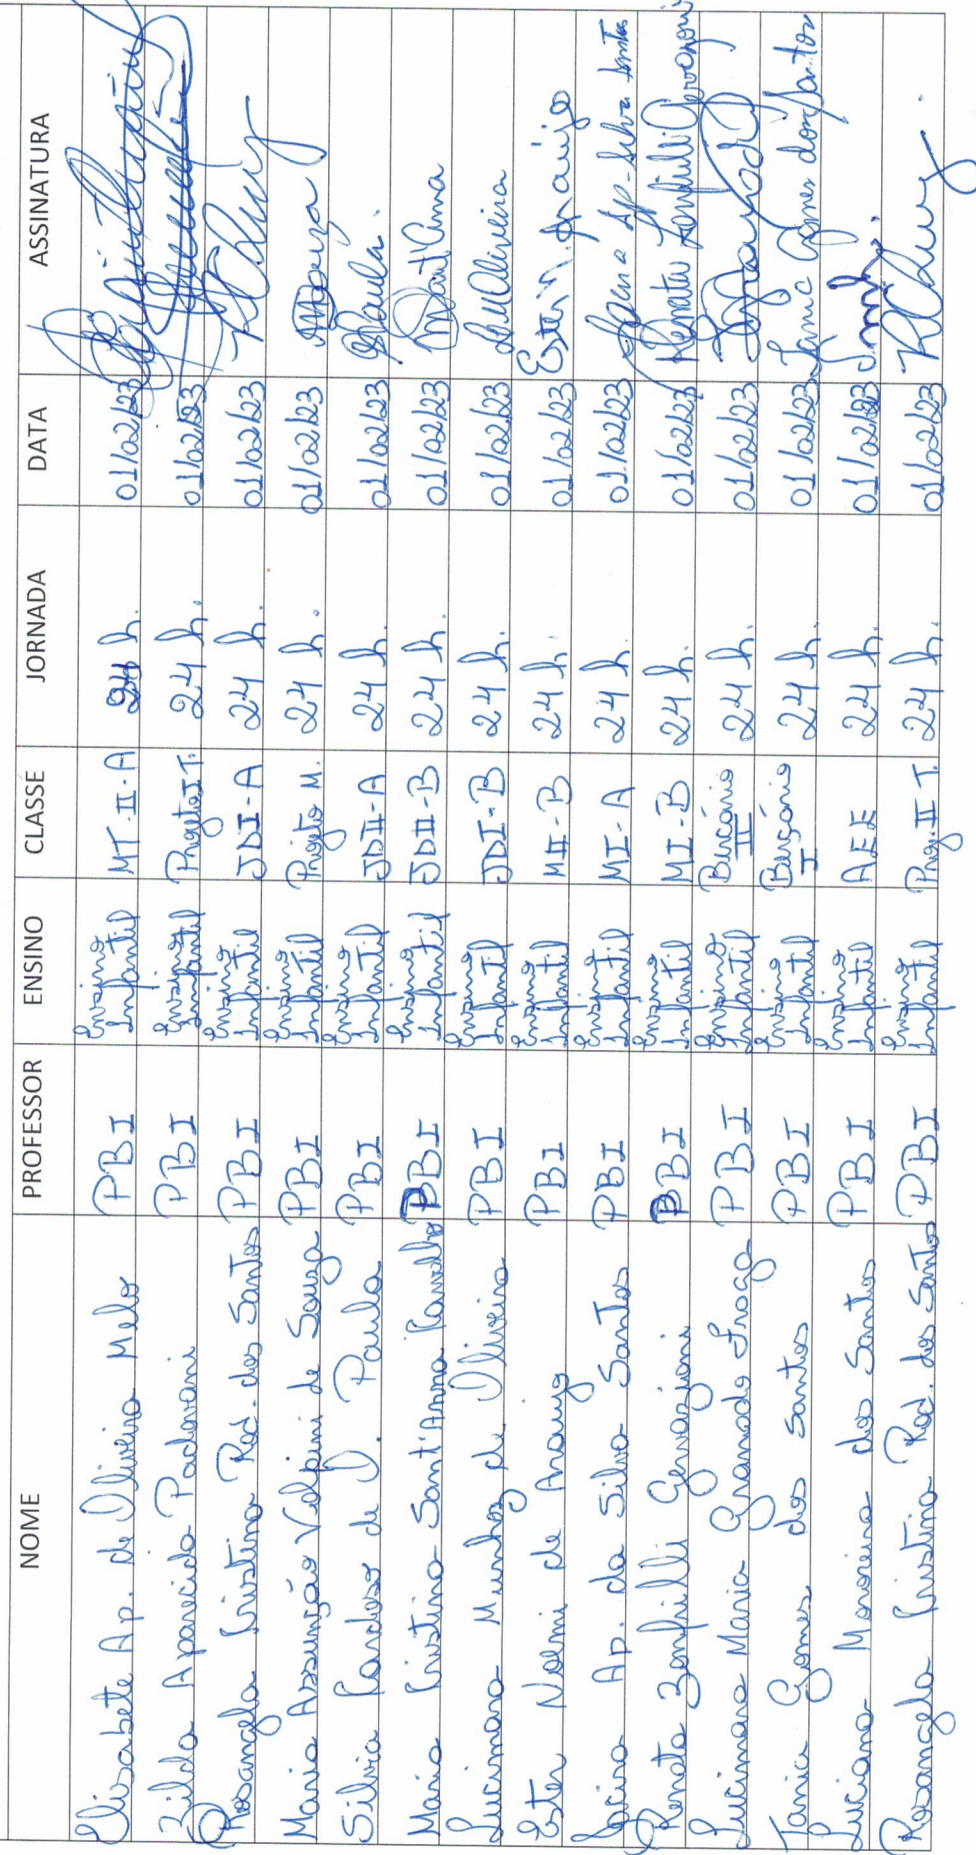 NOME PROFESSOR ENSINO CLASSE JORNADA DATA ASSINATURA
Elisabete Ap. de Oliveira Melo PBI Ensino Infantil MT II-A 24 h. 01/02/23
Zilda Aparecida Padovani PBI Ensino Infantil Projeto I T. 24 h. 01/02/23
Rosangela Cristina Rod. dos Santos PBI Ensino Infantil JDI-A 24 h. 01/02/23
Maria Assunção Volpini de Souza PBI Ensino Infantil Projeto M. 24 h. 01/02/23
Silvia Cardoso de O. Paula PBI Ensino Infantil JDII-A 24 h. 01/02/23 SPaula.
Maria Cristina Sant'Anna Carvalho PBI Ensino Infantil JDII-B 24 h. 01/02/23
Lucimara Munhoz de Oliveira PBI Ensino Infantil JDI-B 24 h. 01/02/23
Ester Noemi de Araujo PBI Ensino Infantil MII-B 24 h. 01/02/23 Ester N. Araújo
Ap. da Silva Santos PBI Ensino Infantil MI-A 24 h. 01/02/23 Ap. Silva Santos
Renata Zonfrilli Gervazoni PBI Ensino Infantil MI-B 24 h. 01/02/23 Renata Zonfrilli Gervazoni
Lucimara Maria Granado Fraga PBI Ensino Infantil Berçário II 24 h. 01/02/23
Tania Gomes dos Santos PBI Ensino Infantil Berçário I 24 h. 01/02/23 Tania Gomes dos Santos
Luciana Moreira dos Santos PBI Ensino Infantil AEE 24 h. 01/02/23
Rosangela Cristina Rod. dos Santos PBI Ensino Infantil Proj. II T. 24 h. 01/02/23